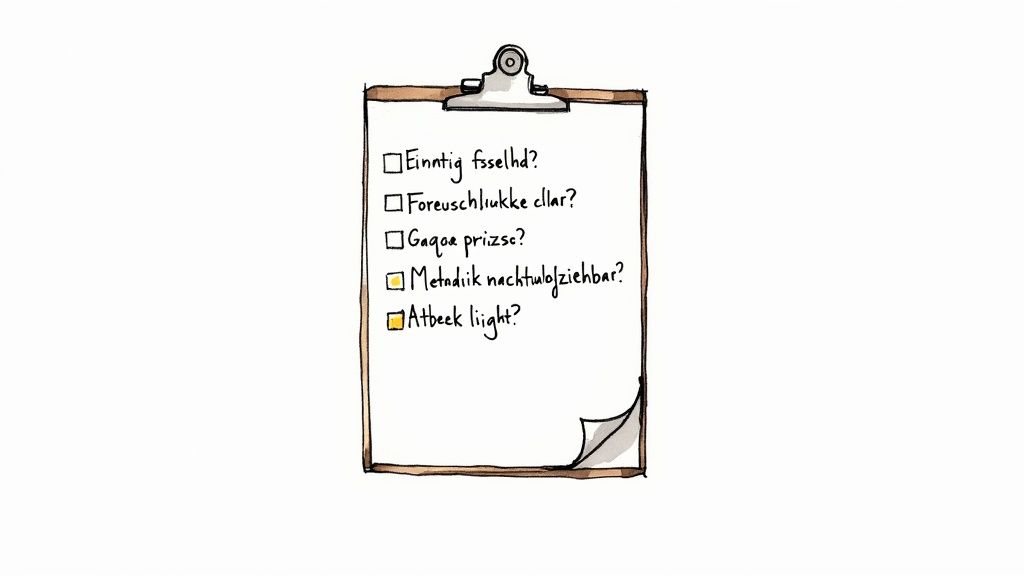 Einntig fsselhd?
Foreuschlukke cllar?
Gaqoa prizsc?
Metndiik nachtwlofziehbar?
Atbeek liight?